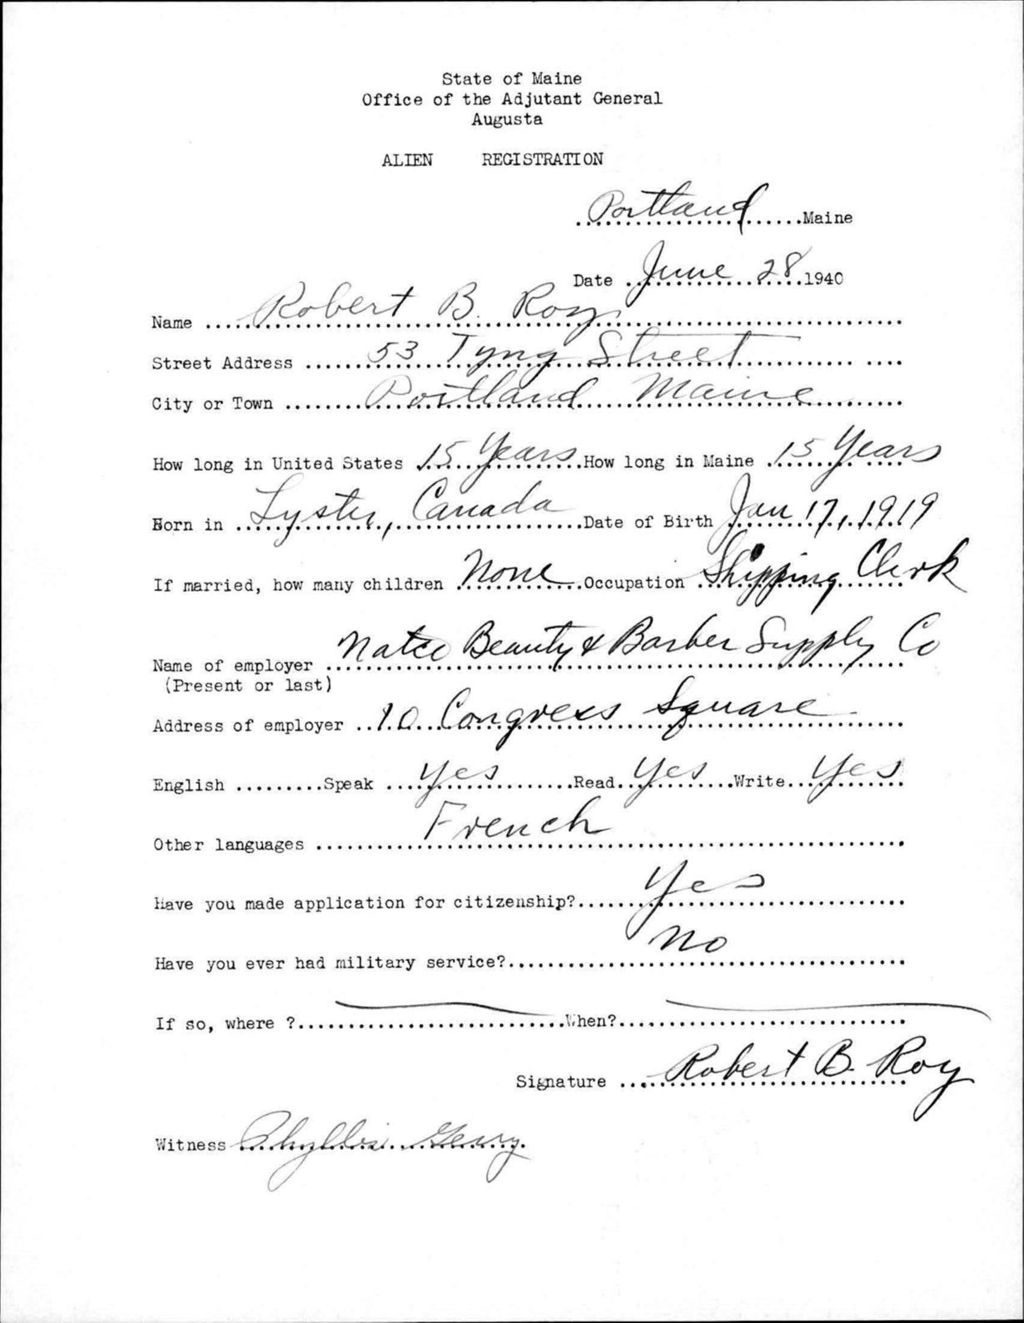 State of Maine
Office of the Adjutant General
Augusta
ALIEN REGISTRATION
Portland Maine
Date June 28 1940
Name Robert B. Roy
Street Address 53 Tyng Street
City or Town Portland Maine
How long in United States 15 Years How long in Maine 15 Years
Born in Lyster, Canada Date of Birth Jan 17, 1919
If married, how many children None Occupation Shipping Clerk
Name of employer Natco Beauty & Barber Supply Co
(Present or last)
Address of employer 10 Congress Square
English Speak Yes Read Yes Write Yes
Other languages French
Have you made application for citizenship? Yes
Have you ever had military service? No
If so, where ? When?
Signature Robert B. Roy
Witness Phyllis Geary